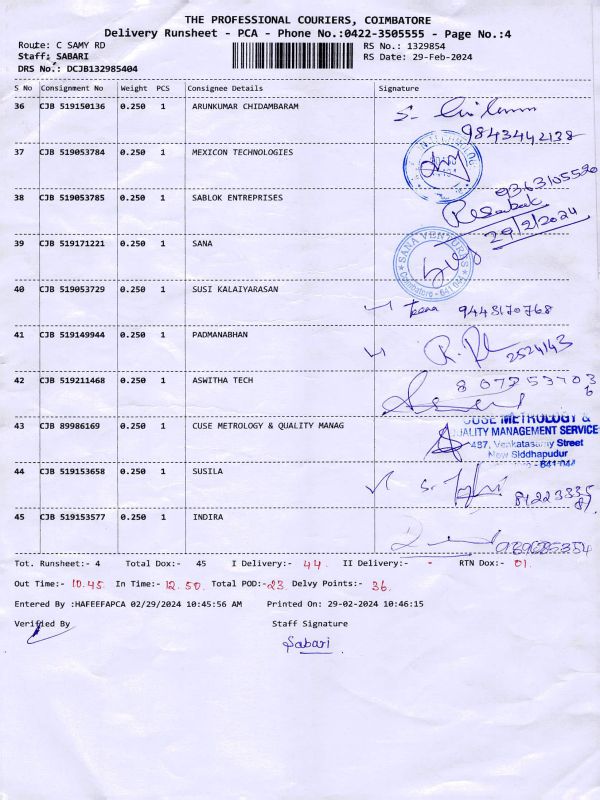 THE PROFESSIONAL COURIERS, COIMBATORE
Delivery Runsheet - PCA - Phone No.:0422-3505555 - Page No.:4
Route: C SAMY RD RS No.: 1329854
Staff: SABARI RS Date: 29-Feb-2024
DRS No.: DCJB132985404
S No Consignment No Weight PCS Consignee Details Signature
36 CJB 519150136 0.250 1 ARUNKUMAR CHIDAMBARAM
9843442138
37 CJB 519053784 0.250 1 MEXICON TECHNOLOGIES
38 CJB 519053785 0.250 1 SABLOK ENTREPRISES
29/2/2024
39 CJB 519171221 0.250 1 SANA
SANA VENTURES
Coimbatore - 641 041
40 CJB 519053729 0.250 1 SUSI KALAIYARASAN
41 CJB 519149944 0.250 1 PADMANABHAN
2524143
42 CJB 519211468 0.250 1 ASWITHA TECH
43 CJB 89986169 0.250 1 CUSE METROLOGY & QUALITY MANAG
CUSE METROLOGY &
QUALITY MANAGEMENT SERVICE
487, Venkatasamy Street
New Siddhapudur
- 641 044
44 CJB 519153658 0.250 1 SUSILA
45 CJB 519153577 0.250 1 INDIRA
Tot. Runsheet:- 4 Total Dox:- 45 I Delivery:- 44. II Delivery:- - RTN Dox:- 01.
Out Time:- 10.45 In Time:- 12.50. Total POD:- 23 Delvy Points:- 36.
Entered By :HAFEEFAPCA 02/29/2024 10:45:56 AM Printed On: 29-02-2024 10:46:15
Verified By Staff Signature
Sabari.